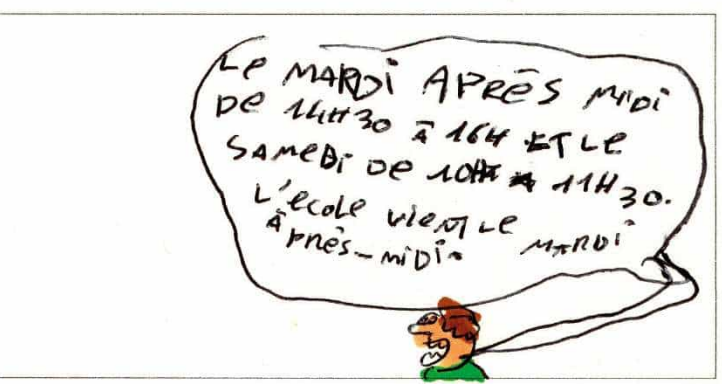 Le MARDi APRèS MiDi
De 14H30 à 16H ET Le
SAMeDi De 10H à 11H30.
L'école vient Le MARDi
APrès-miDi.